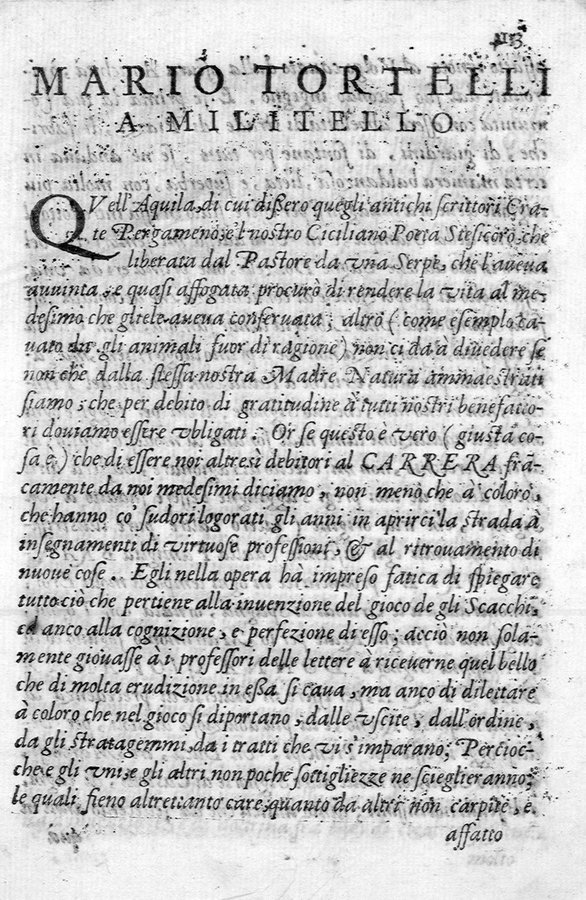 113
MARIO TORTELLI
A MILITELLO
QVell'Aquila, di cui dißero quegli antichi scrittori Cra-
te Pergameno, e'l nostro Ciciliano Poeta Stesicoro, che
liberata dal Pastore da vna Serpe, che l'aueua
auuinta, e quasi affogata, procurò di rendere la vita al me-
desimo che gliele aueua conseruata; altro (come esemplo ca-
uato da gli animali fuor di ragione) non ci da a diuedere se
non che dalla stessa nostra Madre Natura ammaestrati
siamo, che per debito di gratitudine à tutti nostri benefatto-
ri douiamo essere vbligati. Or se questo è vero (giusta co-
sa e) che di essere noi altresì debitori al CARRERA frã-
camente da noi medesimi diciamo, non meno che à coloro,
che hanno co' sudori logorati gli anni in aprirci la strada à
insegnamenti di virtuose professioni, & al ritrouamento di
nuoue cose. Egli nella opera hà impreso fatica di spiegare
tutto ciò che pertiene alla inuenzione del gioco de gli Scacchi,
ed anco alla cognizione, e perfezione di esso; acciò non sola-
mente giouasse à i professori delle lettere a riceuerne quel bello
che di molta erudizione in eßa si caua, ma anco di dilettare
à coloro che nel gioco si diportano, dalle vscite, dall'ordine,
da gli stratagemmi, da i tratti che vi s'imparano; Percioc-
che e gli vni, e gli altri non poche sottigliezze ne scieglieranno;
le quali sieno altrettanto care, quanto da altri non carpite, e
affatto